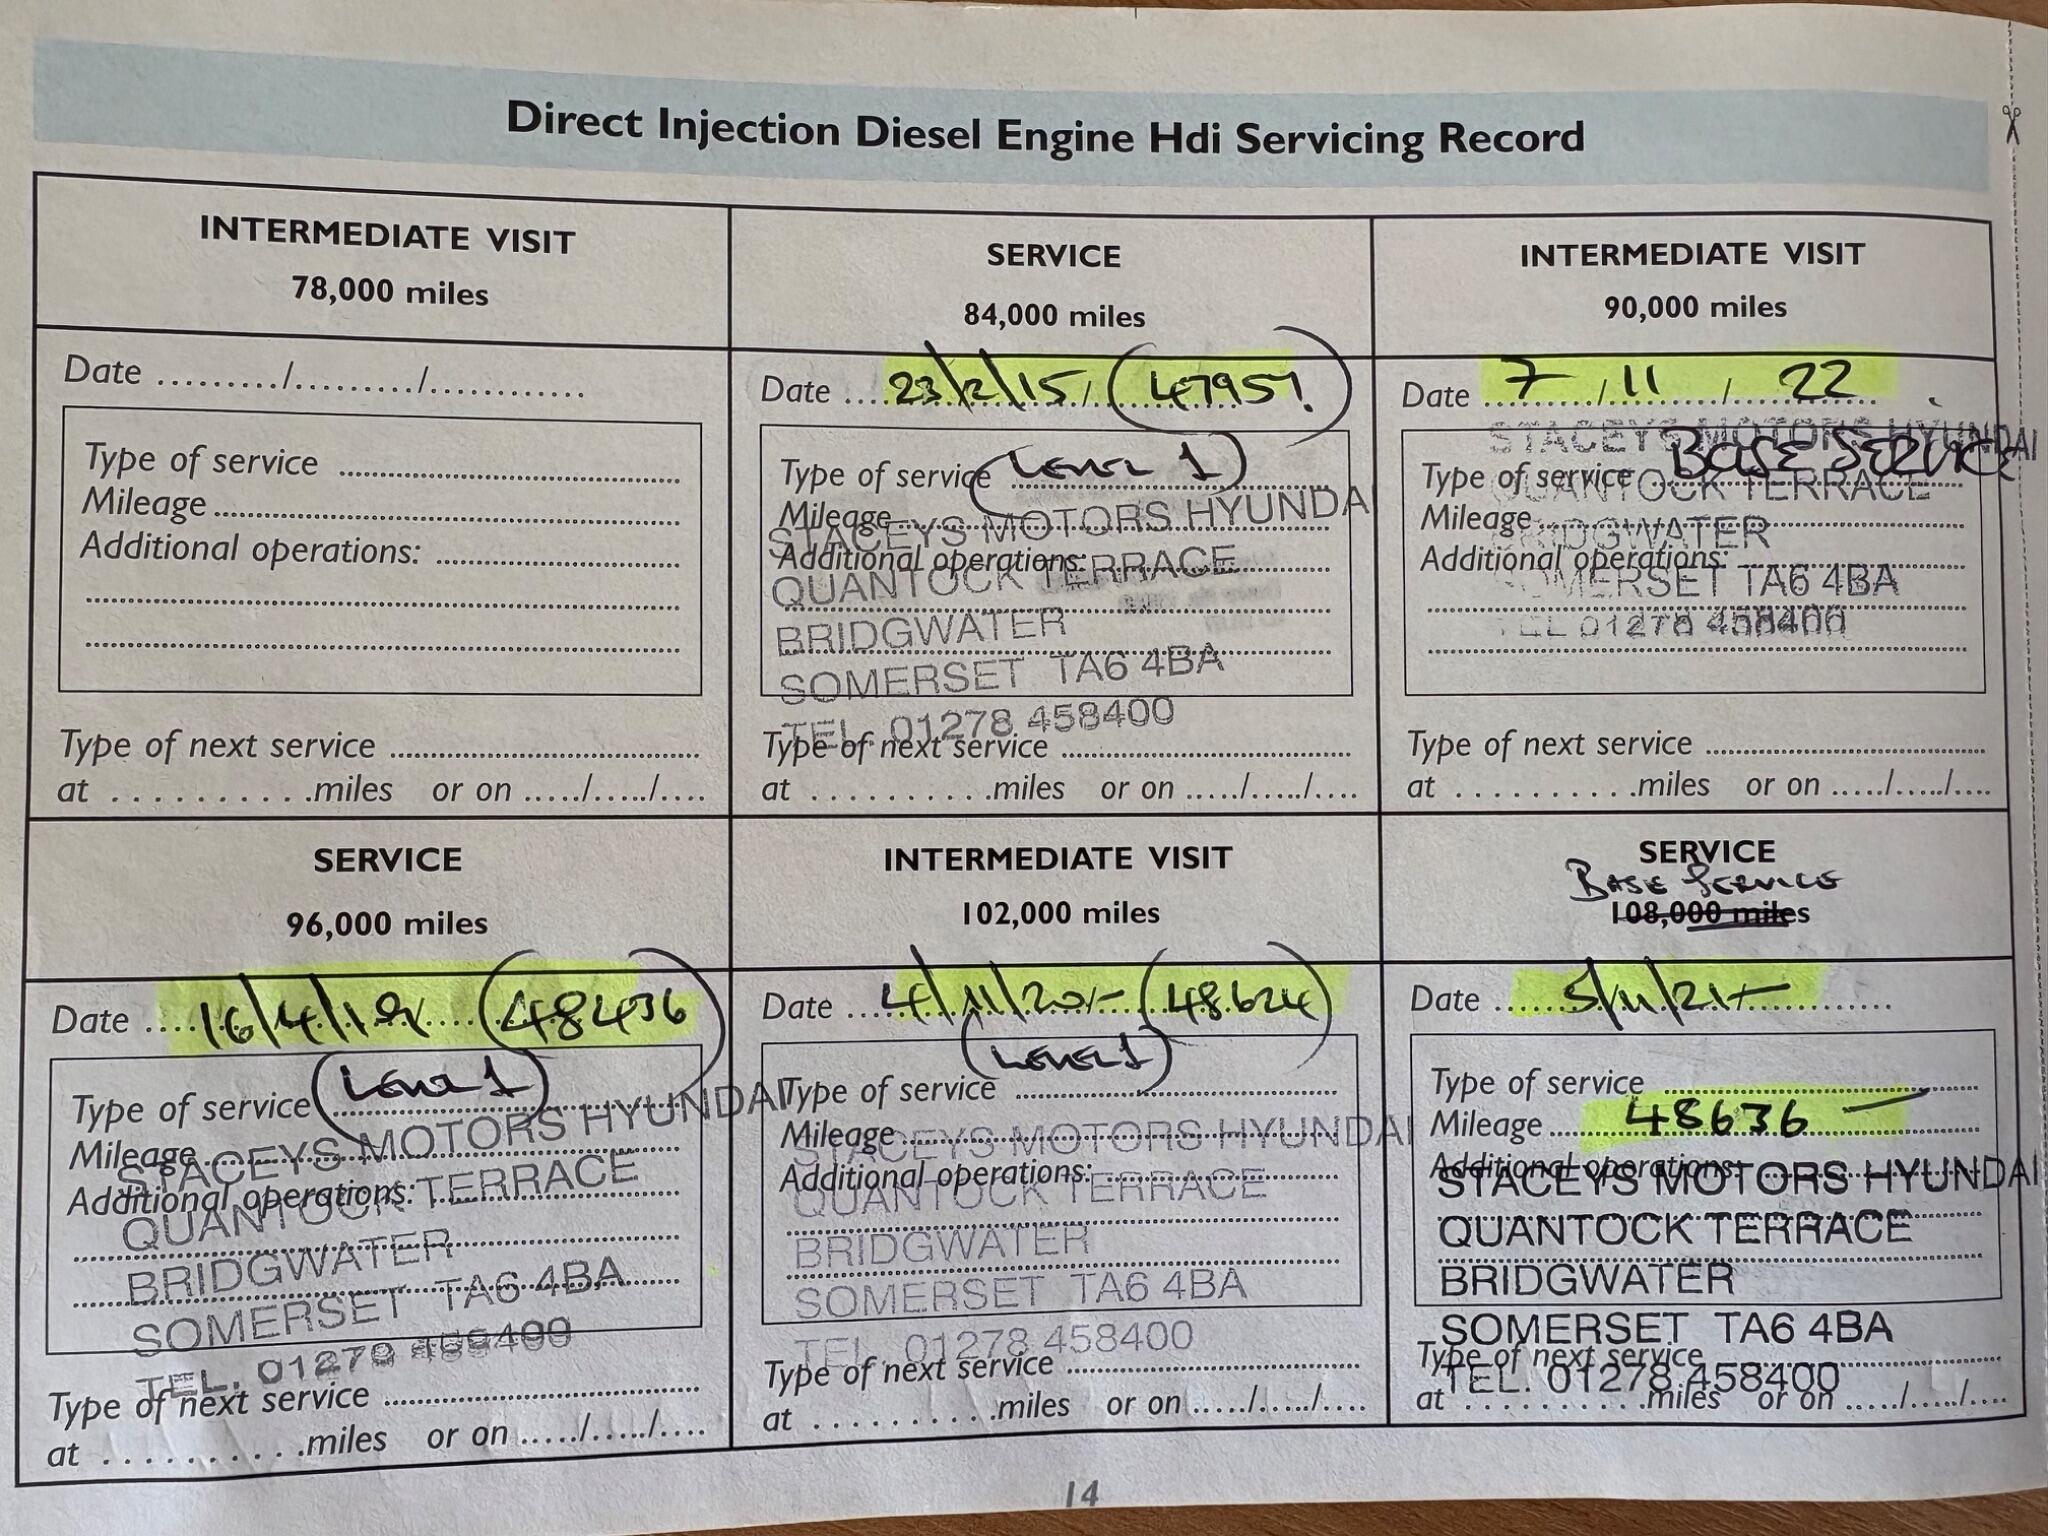 Direct Injection Diesel Engine Hdi Servicing Record
INTERMEDIATE VISIT
78,000 miles
Date ........./........./............
Type of service
Mileage
Additional operations:
Type of next service
at ..........miles or on ...../...../....
SERVICE
84,000 miles
Date 23/2/15/ 47957
Type of service LEVEL 1
Mileage
Additional operations:
STACEYS MOTORS HYUNDAI
QUANTOCK TERRACE
BRIDGWATER
SOMERSET TA6 4BA
TEL. 01278 458400
Type of next service
at ..........miles or on ...../...../....
INTERMEDIATE VISIT
90,000 miles
Date 7/11/22
STACEYS MOTORS HYUNDAI
Type of service BASE SERVICE
QUANTOCK TERRACE
Mileage
BRIDGWATER
Additional operations:
SOMERSET TA6 4BA
TEL 01278 458400
Type of next service
at ..........miles or on ...../...../....
SERVICE
96,000 miles
Date 16/4/ 48436
Type of service LEVEL 1
Mileage
Additional operations:
STACEYS MOTORS HYUNDAI
QUANTOCK TERRACE
BRIDGWATER
SOMERSET TA6 4BA
TEL. 01278 458400
Type of next service
at ..........miles or on ...../...../....
INTERMEDIATE VISIT
102,000 miles
Date 4/11/20 48.624
LEVEL 1
Type of service
Mileage
Additional operations:
STACEYS MOTORS HYUNDAI
QUANTOCK TERRACE
BRIDGWATER
SOMERSET TA6 4BA
TEL. 01278 458400
Type of next service
at ..........miles or on ...../...../....
SERVICE
BASE SERVICE
108,000 miles
Date 5/11/21
Type of service
Mileage 48636
Additional operations:
STACEYS MOTORS HYUNDAI
QUANTOCK TERRACE
BRIDGWATER
SOMERSET TA6 4BA
Type of next service
TEL. 01278 458400
at ..........miles or on ...../...../....
14